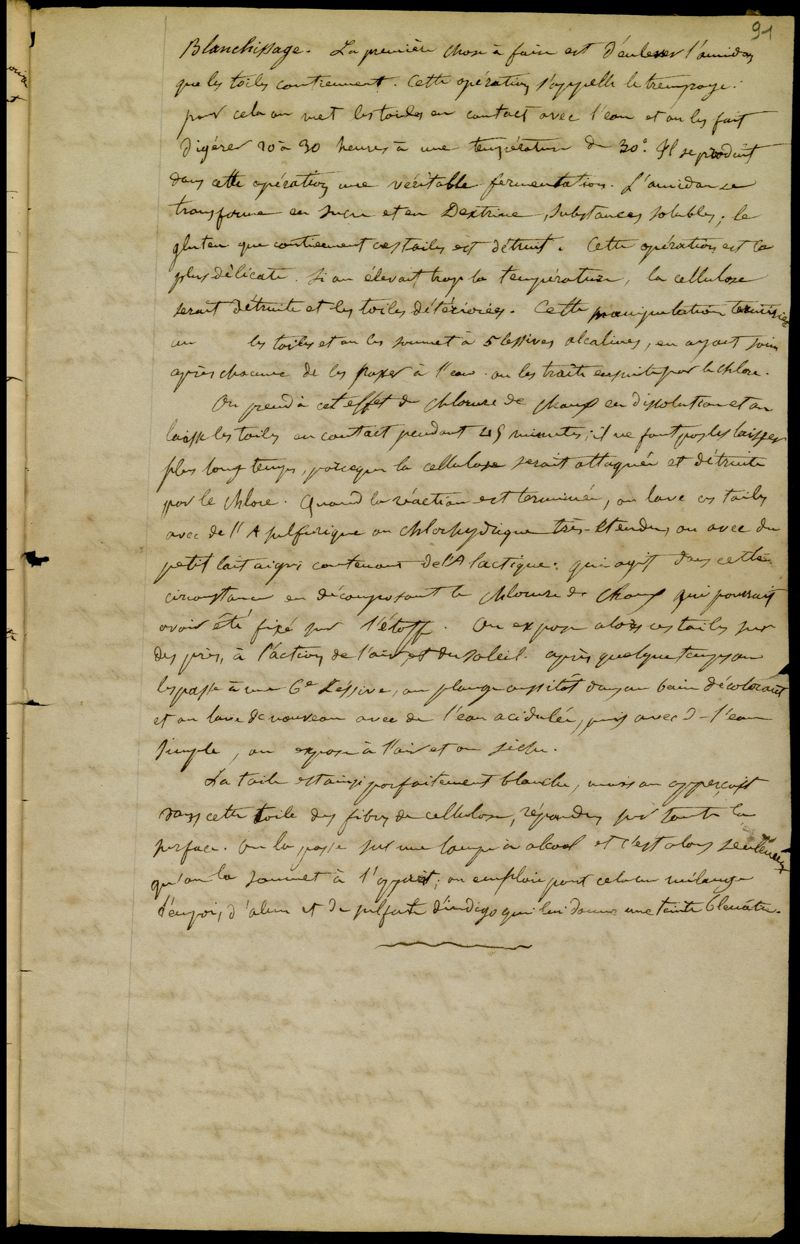 91
Blanchissage. La première chose à faire est d'enlever l'amidon
que les toiles contiennent. Cette opération s'appelle le trempage:
pour cela on met les toiles en contact avec l'eau et on les fait
digérer 20 à 30 heures à une température de 30°. Il se produit
dans cette opération une véritable fermentation. L'amidon se
transforme en sucre et en Dextrine, substances solubles; le
gluten que contiennent ces toiles est détruit. Cette opération est la
plus délicate. Si on élevait trop la température, la cellulose
serait détruite et les toiles détériorées. Cette manipulation terminée
on les toiles et on les soumet à 5 lessives alcalines, en ayant soin
après chacune de les passer à l'eau. on les traite ensuite par le chlore.
On prend à cet effet du chlorure de chaux en dissolution et on
laisse les toiles en contact pendant 45 minutes; il ne faut pas les laisser
plus longtemps, parceque la cellulose serait attaquée et détruite
par le chlore. Quand la réaction est terminée, on lave ces toiles
avec de l'A sulfurique ou chlorhydrique très-étendu, ou avec du
petit lait aigri contenant de l'A lactique. qui agit dans cette
circonstance en décomposant le chlorure de chaux qui pourrait
avoir été fixé sur l'étoffe. On expose alors ces toiles sur
des près, à l'action de l'air et du soleil. après quelque temps on
les passe à une 6e lessive, on plonge aussitôt dans un bain décolorant
et on lave de nouveau avec de l'eau acidulée, puis avec de l'eau
simple, on expose à l'air et on sèche.
La toile est ainsi parfaitement blanche, mais on apperçoit
dans cette toile des fibres de cellulose, répandues sur toute la
surface. On la passe sur une lampe à alcool et c'est alors seulement
qu'on la soumet à l'apprêt; on emploie pour cela un mélange
d'empois, d'alun et de sulfate d'indigo qui lui donne une teinte bleuâtre.